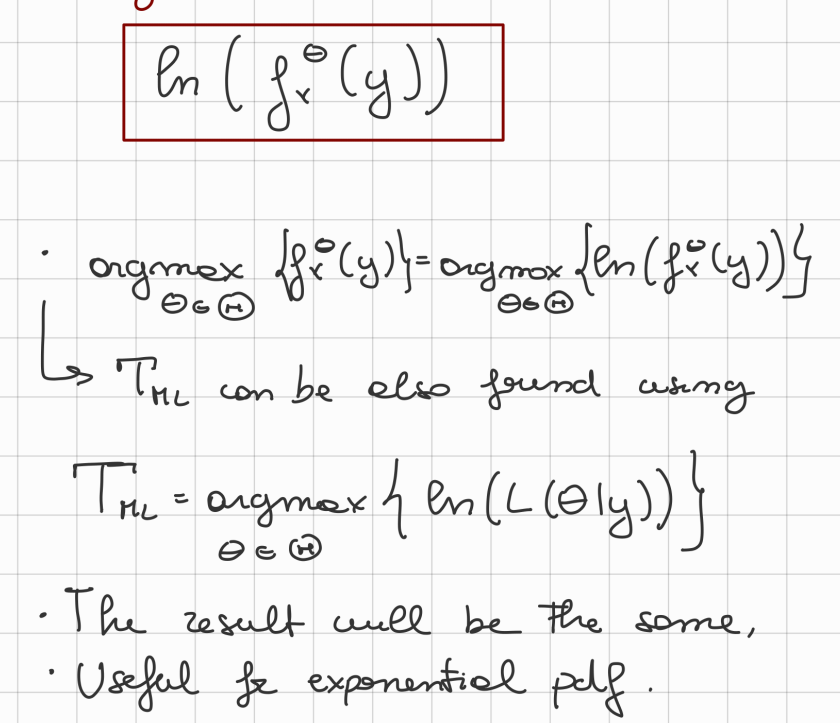 ln ( f_x^θ (y) )
· argmax_{θ∈Θ} { f_x^θ (y) } = argmax_{θ∈Θ} { ln ( f_x^θ (y) ) }
↳ T_ML can be also found using
T_ML = argmax_{θ∈Θ} { ln ( L ( θ | y ) ) }
· The result will be the same,
· Useful for exponential pdf.